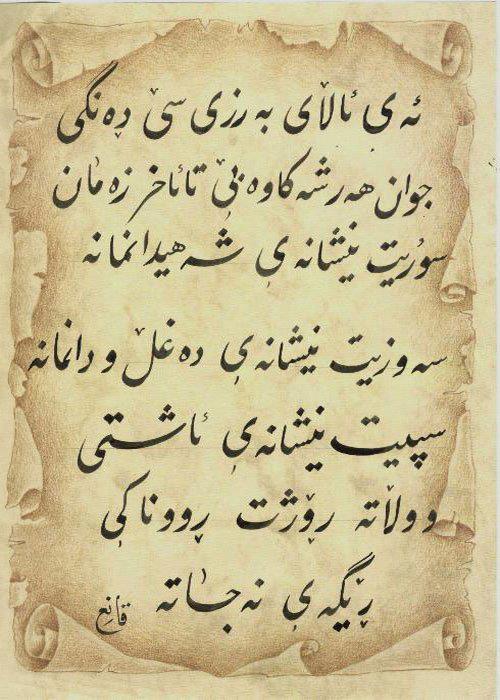 ئەی ئاڵای بەرزی سێ دەنگی
جوان هەر شەکاوە بێ تا ئاخر زەمان
سوریت نیشانەی شەهیدانمانە
سەوزیت نیشانەی دەغڵ و دانمانە
سپیت نیشانەی ئاشتی
و وڵاتە رۆژت ڕووناکی
ڕێگەی نەجاتە قانع